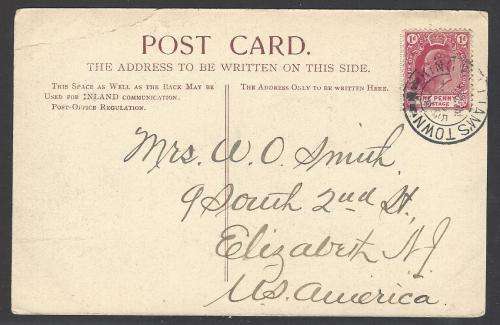 POST CARD.
THE ADDRESS TO BE WRITTEN ON THIS SIDE.
THIS SPACE AS WELL AS THE BACK MAY BE
USED FOR INLAND COMMUNICATION.
POST-OFFICE REGULATION.
THE ADDRESS ONLY TO BE WRITTEN HERE.
1d 1d
ONE PENNY
POSTAGE
LIAM'S TOWN
Mrs. W. O. Smith
9 South 2nd St.
Elizabeth NJ
U.S. America.